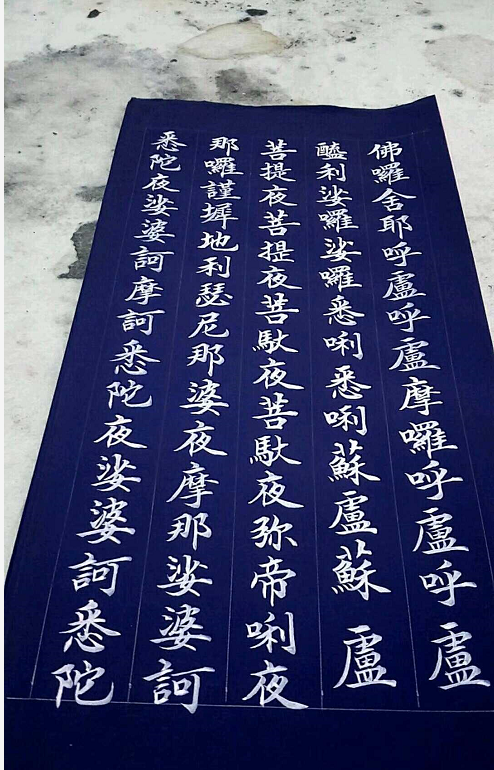 佛囉舍耶呼盧呼盧摩囉呼盧呼盧
醯利娑囉娑囉悉唎悉唎蘇盧蘇盧
菩提夜菩提夜菩馱夜菩馱夜弥帝唎夜
那囉謹墀地利瑟尼那婆夜摩那娑婆訶
悉陀夜娑婆訶摩訶悉陀夜娑婆訶悉陀